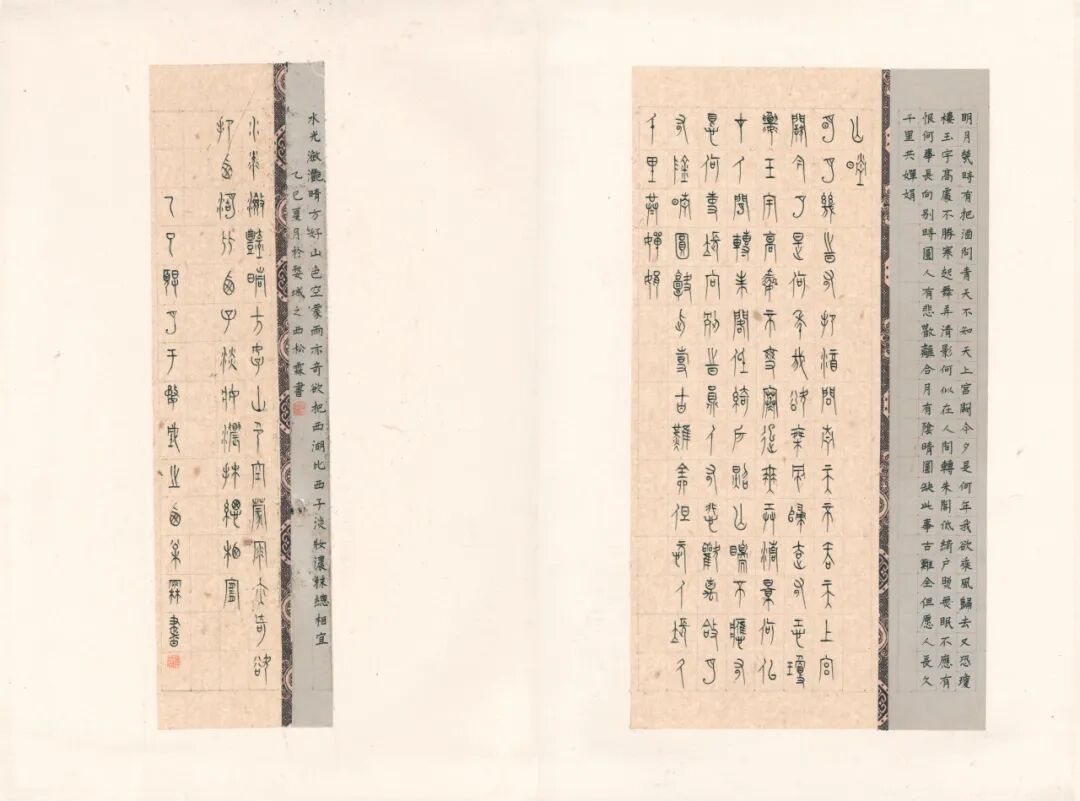 明月幾時有把酒問青天不知天上宮闕今夕是何年我欲乘風歸去又恐瓊
樓玉宇高處不勝寒起舞弄清影何似在人間轉朱閣低綺戶照無眠不應有
恨何事長向別時圓人有悲歡離合月有陰晴圓缺此事古難全但愿人長久
千里共嬋娟
明月幾時有把酒問青天不知天上宮
闕今夕是何年我欲乘風歸去又恐瓊
樓玉宇高處不勝寒起舞弄清影何似
在人間轉朱閣低綺戶照無眠不應有
恨何事長向別時圓人有悲歡離合月
有陰晴圓缺此事古難全但愿人長久
千里共嬋娟
水光瀲灩晴方好山色空蒙雨亦奇欲把西湖比西子淡妝濃抹總相宜
乙巳夏月於婺城之西松霖書
水光瀲灩晴方好山色空蒙雨亦奇欲
把西湖比西子淡妝濃抹總相宜
乙巳夏月于婺城之西松霖書